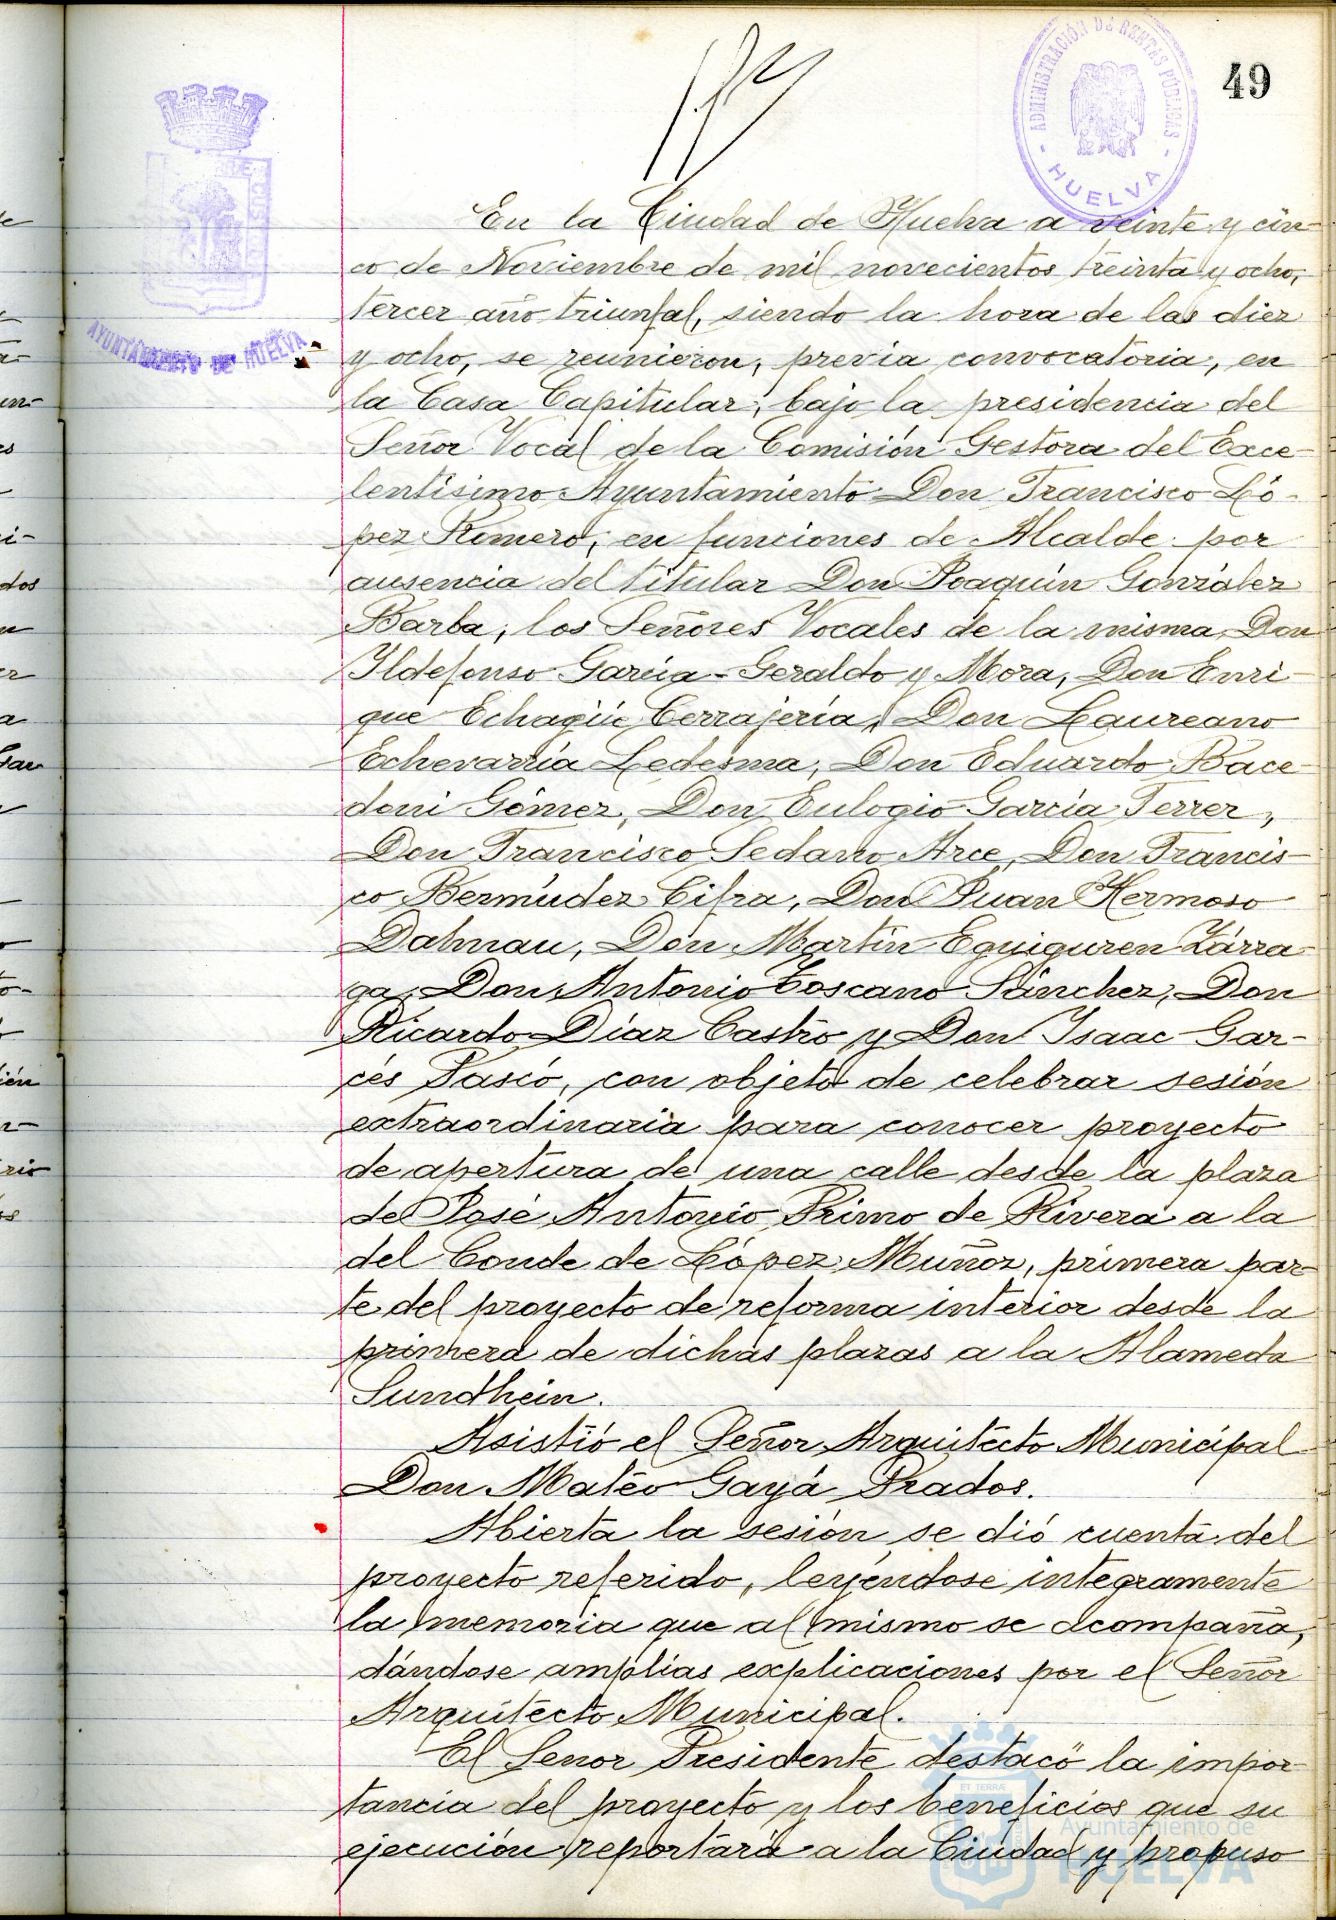 49
ADMINISTRACIÓN DE RENTAS PÚBLICAS
- HUELVA -
AYUNTAMIENTO DE HUELVA
En la Ciudad de Huelva a veinte y cin-
co de Noviembre de mil novecientos treinta y ocho,
tercer año triunfal, siendo la hora de las diez
y ocho, se reunieron, previa convocatoria, en
la Casa Capitular, bajo la presidencia del
Señor Vocal de la Comisión Gestora del Exce-
lentísimo Ayuntamiento Don Francisco Ló-
pez Romero, en funciones de Alcalde por
ausencia del titular Don Joaquín González
Barba, los Señores Vocales de la misma, Don
Ildefonso García-Geraldo y Mora, Don Enri-
que Echagüe Cerrajería, Don Laureano
Echevarría Ledesma, Don Eduardo Bace-
doni Gómez, Don Eulogio García Ferrer,
Don Francisco Sedano Arce, Don Francis-
co Bermúdez Cifra, Don Juan Hermoso
Dalmau, Don Martín Eguiguren Zárra-
ga, Don Antonio Toscano Sánchez, Don
Ricardo Díaz Castro y Don Isaac Gar-
cés Pascó, con objeto de celebrar sesión
extraordinaria para conocer proyecto
de apertura de una calle desde la plaza
de José Antonio Primo de Rivera a la
del Conde de López Muñoz, primera par-
te del proyecto de reforma interior desde la
primera de dichas plazas a la Alameda
Sundhein.
Asistió el Señor Arquitecto Municipal
Don Mateo Gayá Prados.
Abierta la sesión se dió cuenta del
proyecto referido, leyéndose integramente
la memoria que al mismo se acompaña,
dándose amplias explicaciones por el Señor
Arquitecto Municipal.
El Señor Presidente destacó la impor-
tancia del proyecto y los beneficios que su
ejecución reportará a la Ciudad y propuso
ET TERRÆ
Ayuntamiento de
HUELVA